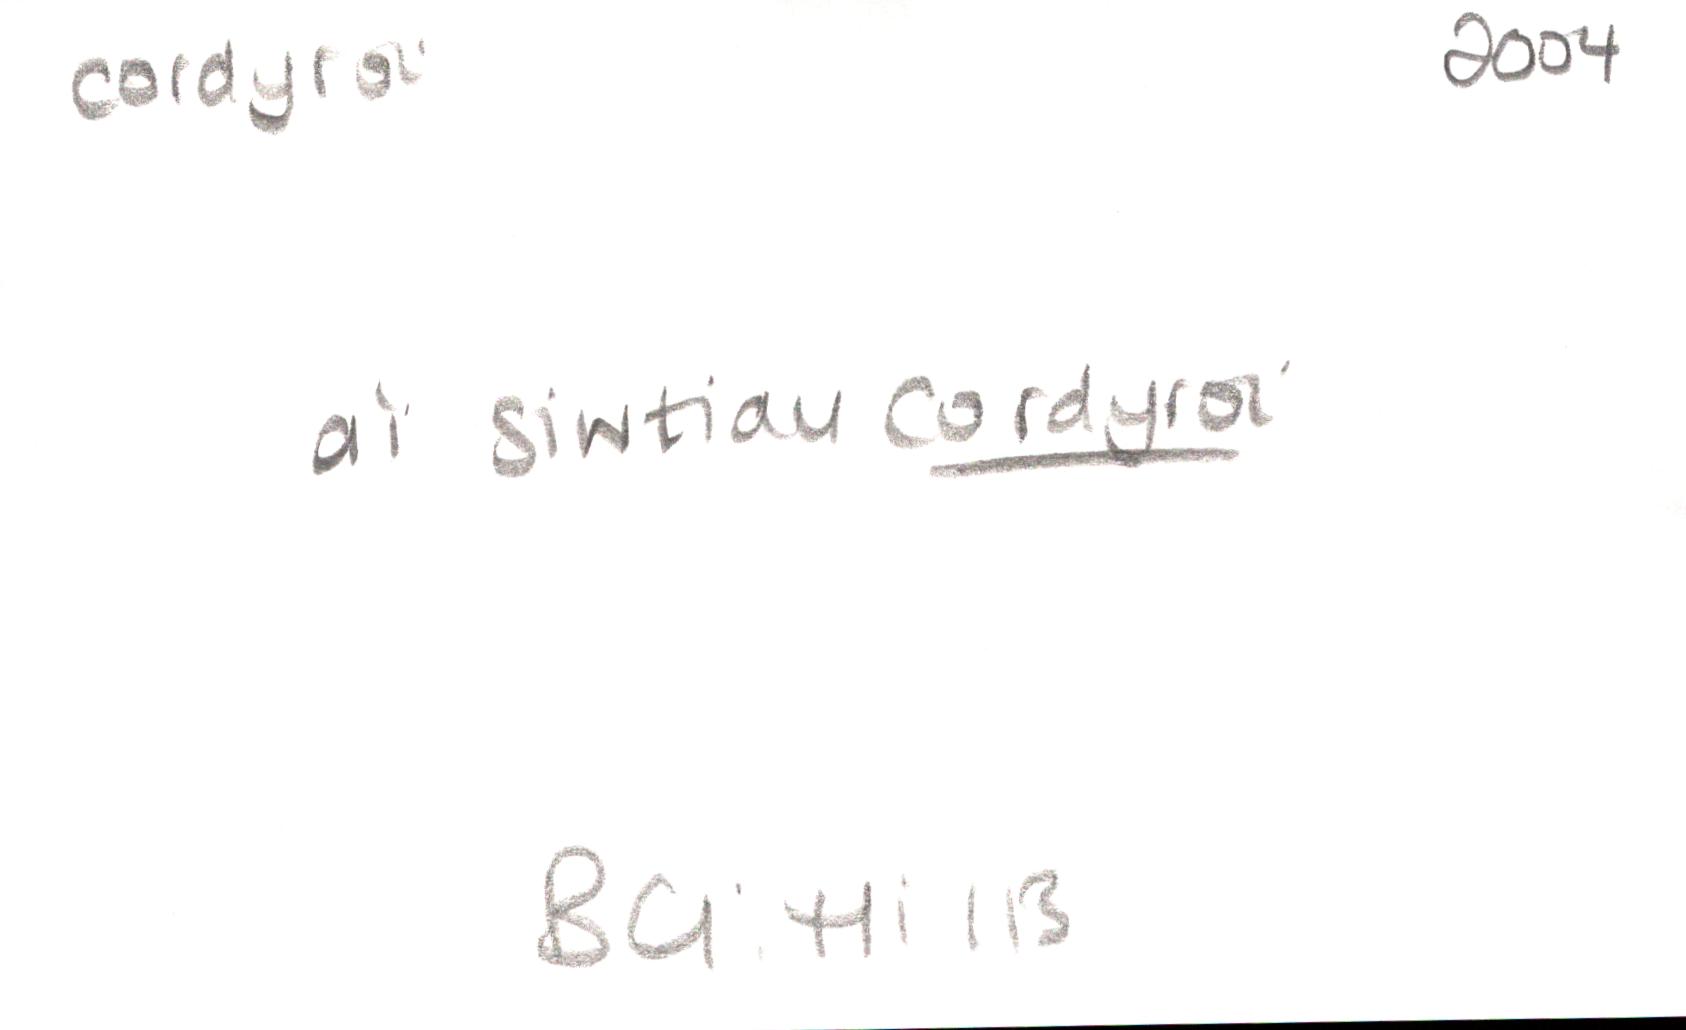 cordyroi 2004
a'i siwtiau Cordyroi
BG: Hi 113